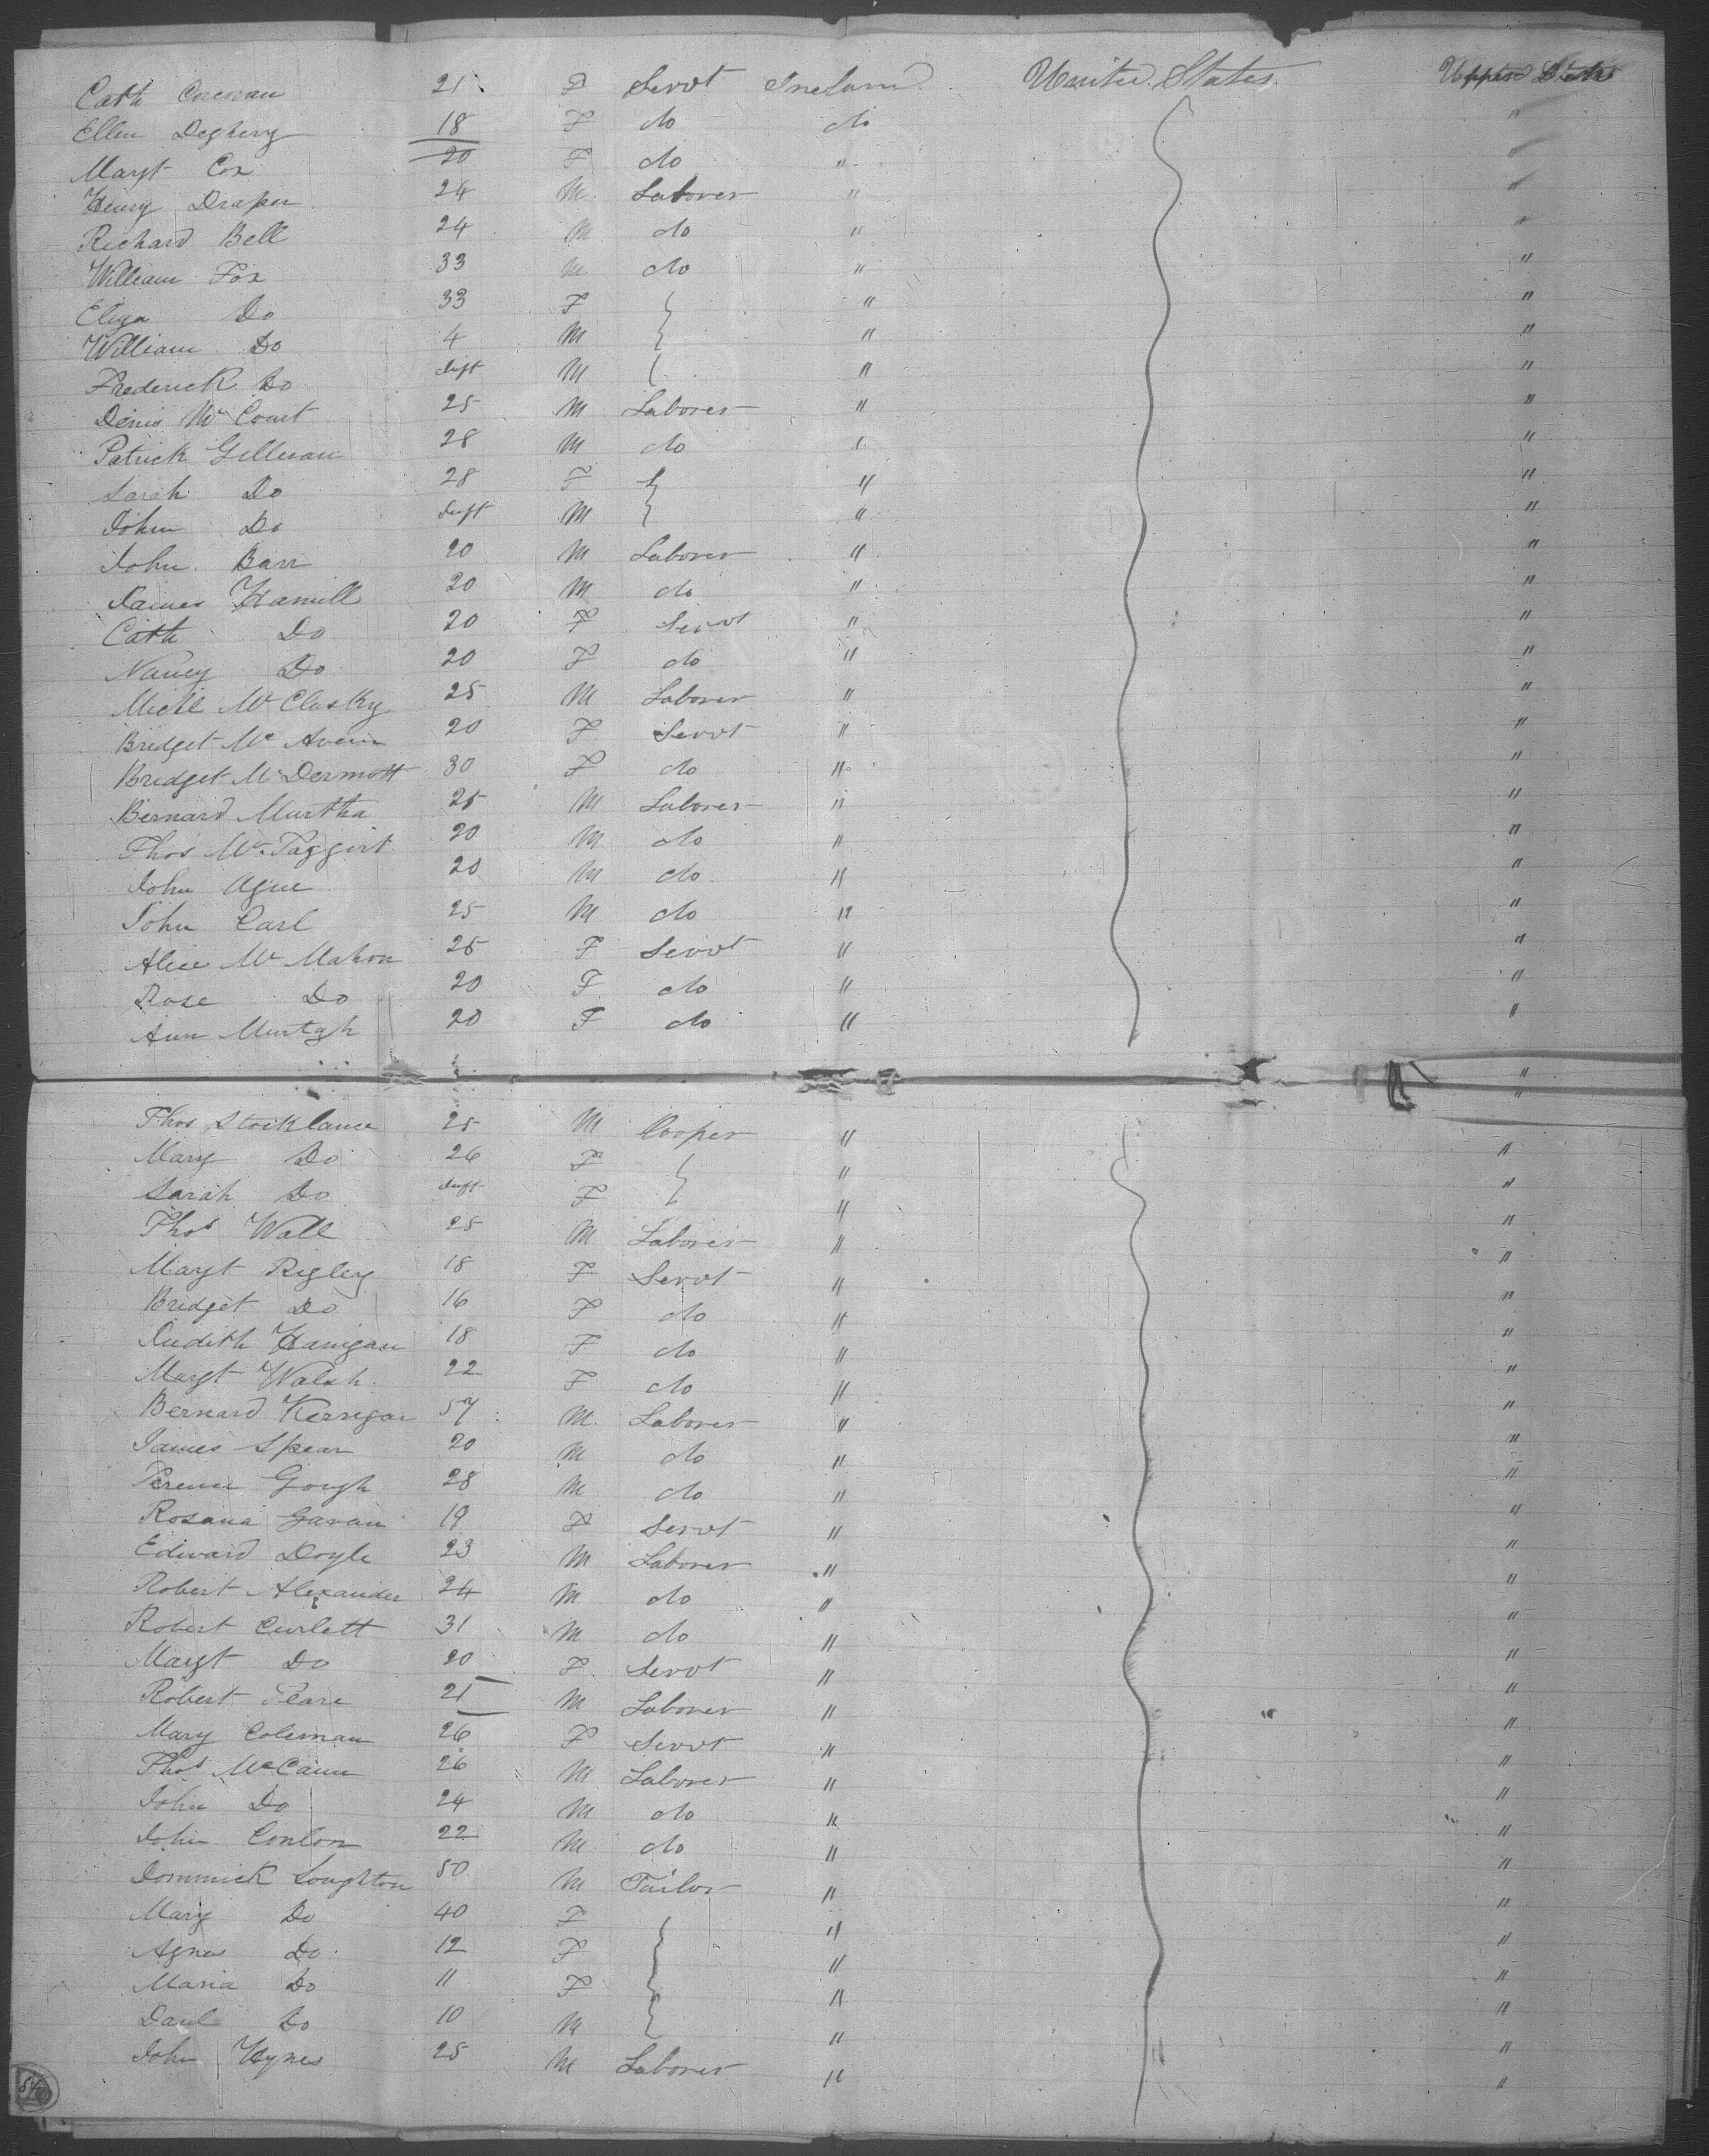 Cath Corcoran 21 F Servt Ireland United States Upper Deck
Ellen Deghery 18 F do do "
Margt Cox 20 F do " "
Henry Draper 24 M Laborer " "
Richard Bell 24 M do " "
William Fox 33 M do " "
Eliza Do 33 F " "
William Do 4 M " "
Frederick Do Inft M " "
Denis McCourt 25 M Laborer " "
Patrick Gillman 28 M do " "
Sarah Do 28 F " "
John Do Inft M " "
John Barr 20 M Laborer " "
James Hamill 20 M do " "
Cath Do 20 F Servt " "
Nancy Do 20 F do " "
Michl McClusky 25 M Laborer " "
Bridget Mc 20 F Servt " "
Bridget McDermott 30 F do " "
Bernard Murtha 25 M Laborer " "
Thos McTaggirt 20 M do " "
John Ague 20 M do " "
John Carl 25 M do " "
Alice McMahon 25 F Servt " "
Rose Do 20 F do " "
Ann Murtgh 20 F do " "
"
"
Thos Stocklance 25 M Cooper " "
Mary Do 26 F " "
Sarah Do Inft F " "
Thos Wall 25 M Laborer " "
Margt Rigley 18 F Servt " "
Bridget Do 16 F do " "
Judith Hanigan 18 F do " "
Margt Walsh 22 F do " "
Bernard Kerrigan 57 M Laborer " "
James Spear 20 M do " "
Terence Gough 28 M do " "
Rosana Garan 19 F Servt " "
Edward Doyle 23 M Laborer " "
Robert Alexander 24 M do " "
Robert Curlett 31 M do " "
Margt Do 20 F Servt " "
Robert 21 M Laborer " "
Mary Coleman 26 F Servt " "
Thos McCann 26 M Laborer " "
John Do 24 M do " "
John Conlon 22 M do " "
Dommick Loughton 50 M Tailor " "
Mary Do 40 F " "
Agnes Do 12 F " "
Maria Do 11 F " "
Danl Do 10 M " "
John Hynes 25 M Laborer " "